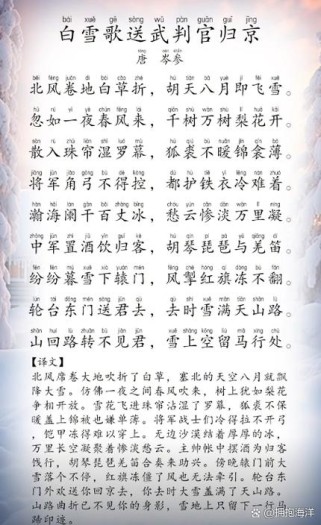 bái xuě gē sòng wǔ pàn guān guī jīng
白雪歌送武判官归京
táng cén shēn
唐 岑参
běi fēng juǎn dì bái cǎo zhé hú tiān bā yuè jí fēi xuě
北风卷地白草折，胡天八月即飞雪。
hū rú yí yè chūn fēng lái qiān shù wàn shù lí huā kāi
忽如一夜春风来，千树万树梨花开。
sàn rù zhū lián shī luó mù hú qiú bù nuǎn jǐn qīn bó
散入珠帘湿罗幕，狐裘不暖锦衾薄。
将军角弓不得控，都护铁衣冷难着。
瀚海阑干百丈冰，愁云惨淡万里凝。
中军置酒饮归客，胡琴琵琶与羌笛。
纷纷暮雪下辕门，风掣红旗冻不翻。
轮台东门送君去，去时雪满天山路。
山回路转不见君，雪上空留马行处。
【译文】
北风席卷大地吹折了白草，塞北的天空八月就飘
降大雪。仿佛一夜之间春风吹来，树上犹如梨花
争相开放。雪花飞进珠帘沾湿了罗幕，狐裘不保
暖盖上锦被也嫌单薄。将军战士们冷得拉不开弓
，铠甲冻得难以穿上。无边沙漠结着厚厚的冰，
万里长空凝聚着惨淡愁云。主帅帐中摆酒为归客
饯行，胡琴琵琶羌笛合奏来助兴。傍晚辕门前大
雪落个不停，红旗冻僵了风也无法牵引。轮台东
门外欢送你回京去，你去时大雪盖满了天山路。
山路曲折已不见你的身影，雪地上只留下一行马
蹄印迹。
@拥抱海洋